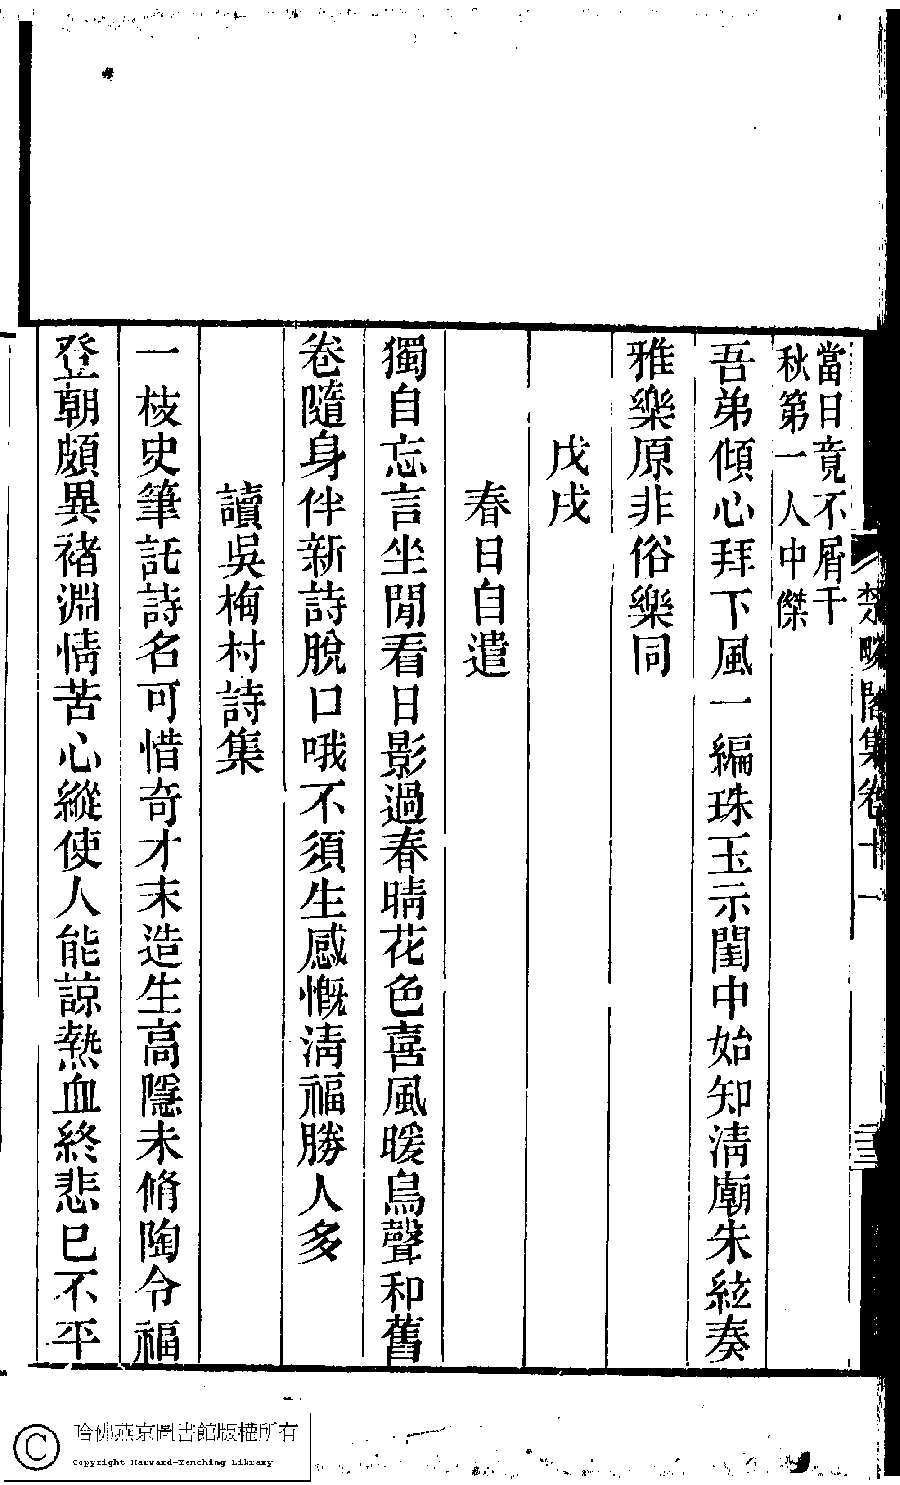 當日竟不屑干
秋第一人中傑
吾弟傾心拜下風一編珠玉示閨中始知清廟朱絃奏
雅樂原非俗樂同
戊戌
春日自遣
獨自忘言坐閒看日影過春晴花色喜風暖鳥聲和舊
卷隨身伴新詩脫口哦不須生感慨清福勝人多
讀吳梅村詩集
一枝史筆託詩名可惜奇才末造生高隱未脩陶令福
登朝頗異褚淵情苦心縱使人能諒熱血終悲已不平
閣集卷十一
哈佛燕京圖書館版權所有
Copyright Harvard-Yenching Library